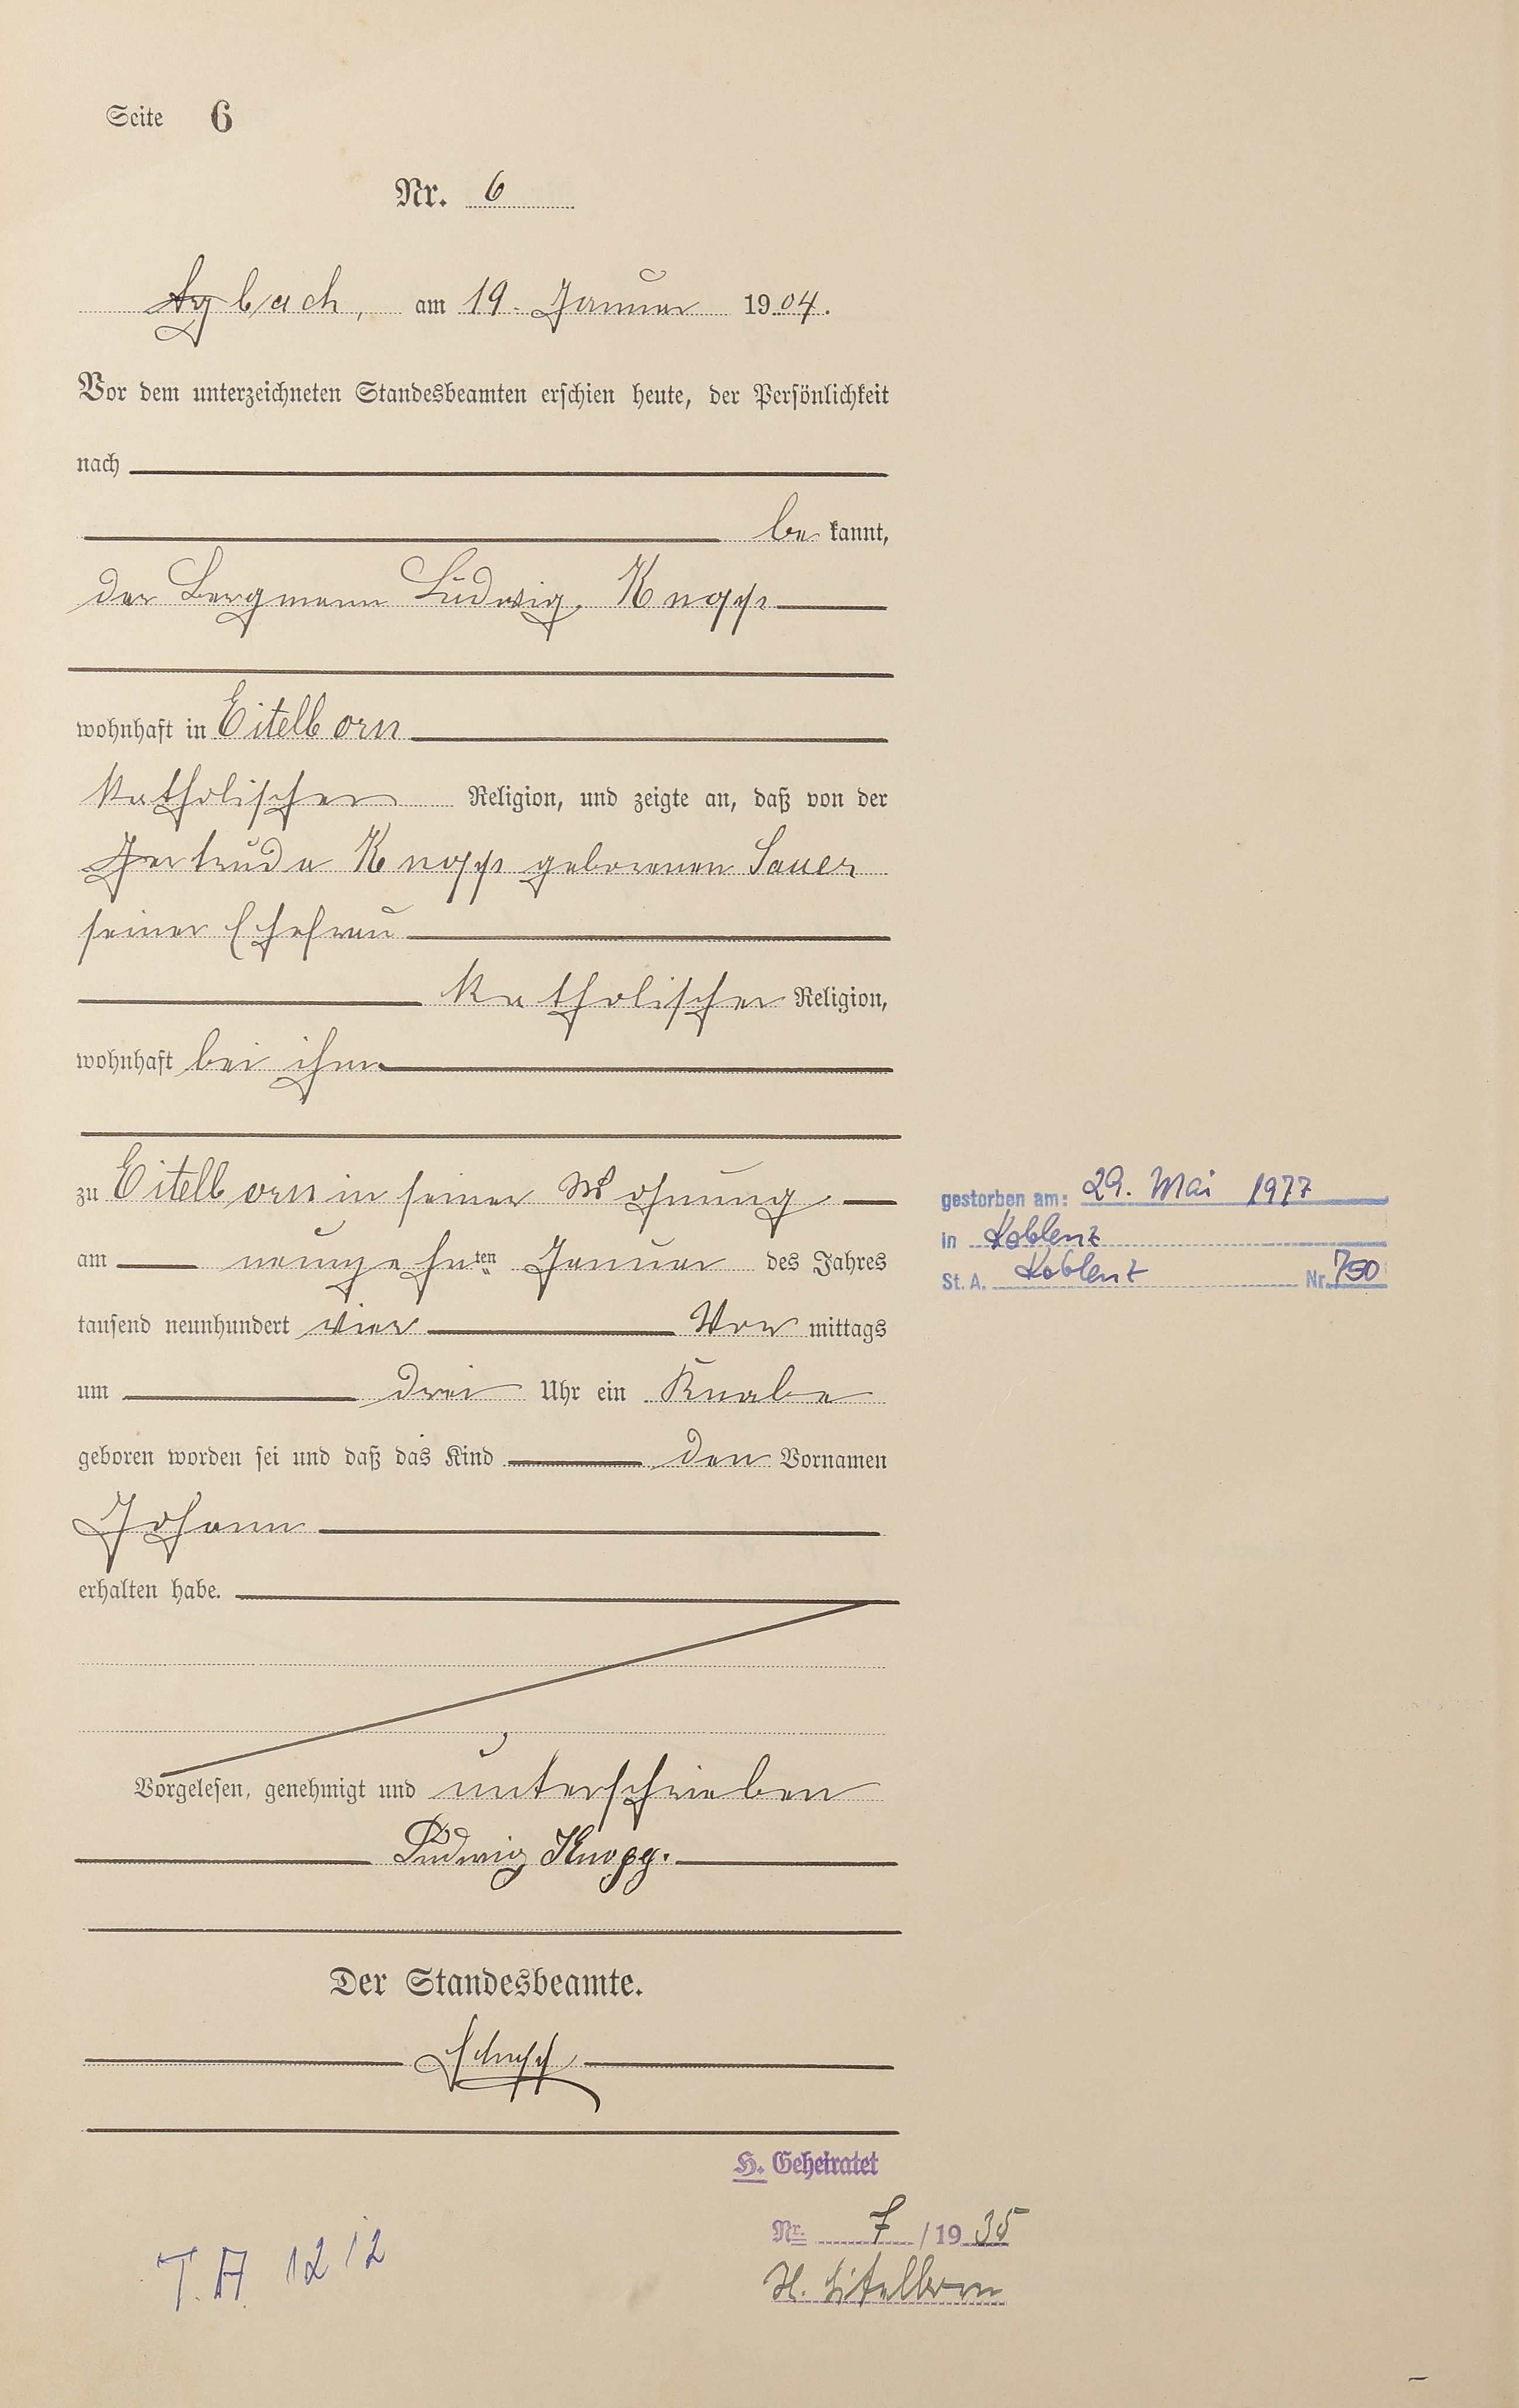 Seite 6
Nr. 6
Arzbach, am 19. Januar 1904.
Vor dem unterzeichneten Standesbeamten erschien heute, der Persönlichkeit
nach
be kannt,
der Bergmann Ludwig Knopp
wohnhaft in Eitelborn
katholischer Religion, und zeigte an, daß von der
Gertruda Knopp geborenen Sauer
seiner Ehefrau
katholischer Religion,
wohnhaft bei ihm
zu Eitelborn in seiner Wohnung
am neunzehnten Januar des Jahres
tausend neunhundert vier Vor mittags
um drei Uhr ein Knabe
geboren worden sei und daß das Kind den Vornamen
Johann
erhalten habe.
Vorgelesen, genehmigt und unterschrieben
Ludwig Knopp.
Der Standesbeamte.
gestorben am: 29. Mai 1977
in Koblenz
St. A. Koblenz Nr. 750
H. Geheiratet
Nr. 7 / 19 35
St. Eitelborn
T. A. 12 12